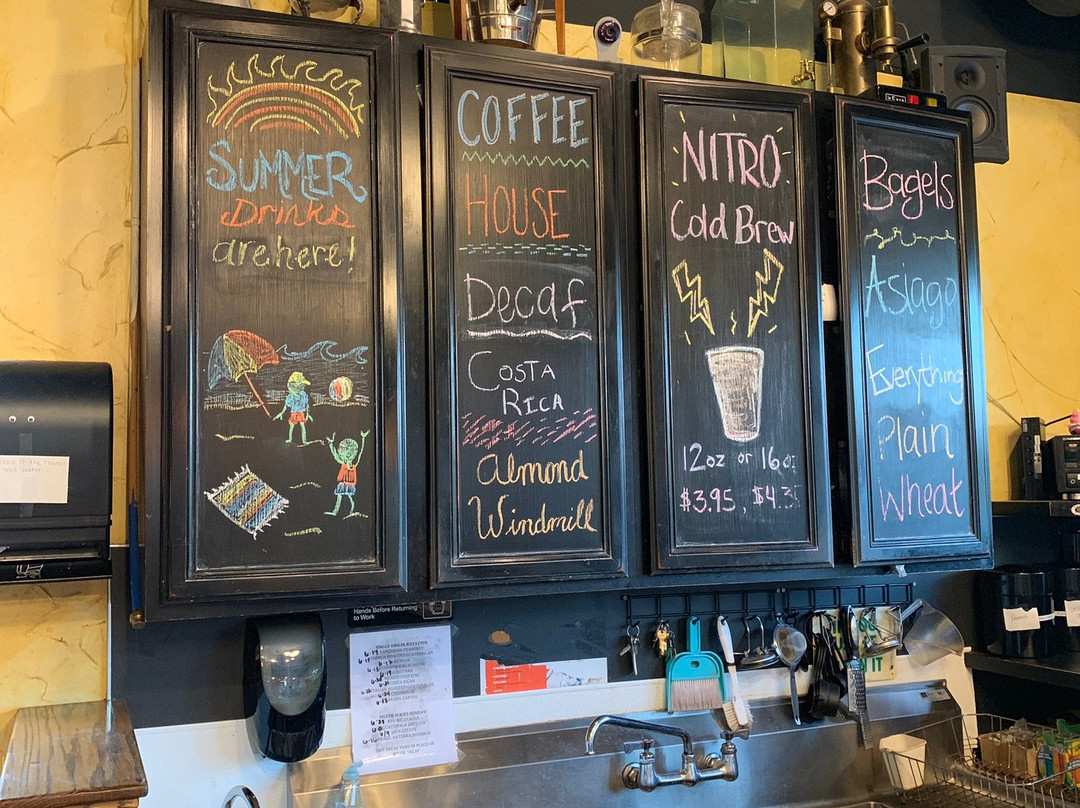 SUMMER
Drinks
are here!
COFFEE
HOUSE
Decaf
COSTA
RICA
Almond
Windmill
NITRO
Cold Brew
12oz or 16oz
$3.95, $4.35
Bagels
Asiago
Everything
Plain
Wheat
Hands Before Returning
to Work
SINGLE ORIGIN ROTATION